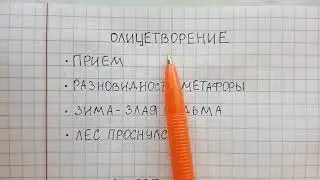 ОЛИЦЕТВОРЕНИЕ
• ПРИЕМ
• РАЗНОВИДНОСТЬ МЕТАФОРЫ
• ЗИМА-ЗЛАЯ ВЕДЬМА
• ЛЕС ПРОСНУЛСЯ